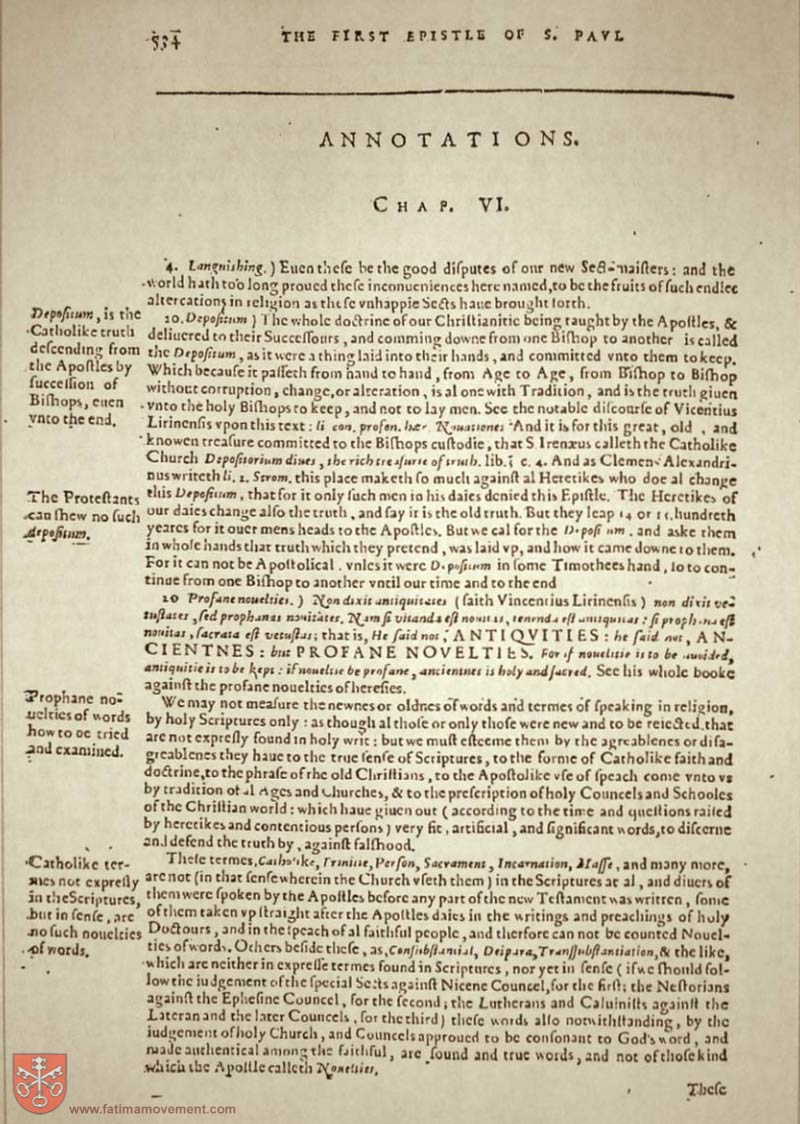 534
THE FIRST EPISTLE OF S. PAVL
ANNOTATIONS.
CHAP. VI.
4. Languishing.) Euen theſe be the good diſputes of our new Sect-maiſters: and the
world hath too long proued theſe inconueniences here named, to be the fruits of ſuch endles
altercations in religion as theſe vnhappie Sects haue brought forth.
20. Depoſitum) The whole doctrine of our Chriſtianitie being taught by the Apoſtles, &
deliuered to their Succeſſours, and comming downe from one Biſhop to another is called
the Depoſitum, as it were a thing laid into their hands, and committed vnto them to keep.
Which becauſe it paſſeth from hand to hand, from Age to Age, from Biſhop to Biſhop
without corruption, change, or alteration, is al one with Tradition, and is the truth giuen
vnto the holy Biſhops to keep, and not to lay men. See the notable diſcourſe of Vicentius
Lirinenſis vpon this text: li con. profan. hær. Nouationes And it is for this great, old, and
knowen treaſure committed to the Biſhops cuſtodie, that S. Irenæus calleth the Catholike
Church Depoſitorium diues, the rich treaſurie of truth. lib. c. 4. And as Clemens Alexandri-
nus writeth li. 2. Strom. this place maketh ſo much againſt al Heretikes who doe al change
this Depoſitum, that for it only ſuch men in his daies denied this Epiſtle. The Heretikes of
our daies change alſo the truth, and ſay it is the old truth. But they leap 14 or 15. hundreth
yeares for it ouer mens heads to the Apoſtles. But we cal for the Depoſitum. and aske them
in whoſe hands that truth which they pretend, was laid vp, and how it came downe to them.
For it can not be Apoſtolical. vnles it were Depoſitum in ſome Timothees hand, ſo to con-
tinue from one Biſhop to another vntil our time and to the end
20 Profane nouelties.) Non dixit antiquitates (ſaith Vincentius Lirinenſis) non dixit ve-
tuſtates, ſed prophanas nouitates. Nam ſi vitanda eſt nouitas, tenenda eſt antiquitas: ſi prophana eſt
nouitas, ſacrata eſt vetuſtas; that is, He ſaid not, ANTIQVITIES: he ſaid not, AN-
CIENTNES: but PROFANE NOVELTIES. For if noueltie is to be auoided,
antiquitie is to be kept: if noueltie be profane, ancientnes is holy and ſacred. See his whole booke
againſt the profane nouelties of hereſies.
We may not meaſure the newnes or oldnes of words and termes of ſpeaking in religion,
by holy Scriptures only: as though al thoſe or only thoſe were new and to be reiected, that
are not expreſly found in holy writ: but we muſt eſteeme them by the agreablenes or diſa-
greablenes they haue to the true ſenſe of Scriptures, to the forme of Catholike faith and
doctrine, to the phraſe of the old Chriſtians, to the Apoſtolike vſe of ſpeach come vnto vs
by tradition of al Ages and Churches, & to the preſcription of holy Councels and Schooles
of the Chriſtian world: which haue giuen out (according to the time and queſtions raiſed
by heretikes and contentious perſons) very fit, artificial, and ſignificant words, to diſcerne
and defend the truth by, againſt falſhood.
Theſe termes, Catholike, Trinitie, Perſon, Sacrament, Incarnation, Maſſe, and many more,
are not (in that ſenſe wherein the Church vſeth them) in the Scriptures at al, and diuers of
them were ſpoken by the Apoſtles before any part of the new Teſtament was written, ſome
of them taken vp ſtraight after the Apoſtles daies in the writings and preachings of holy
Doctours, and in the ſpeach of al faithful people, and therfore can not be counted Nouel-
ties of words. Others beſide theſe, as, Conſubſtantial, Deipara, Tranſſubſtantiation, & the like,
which are neither in expreſſe termes found in Scriptures, nor yet in ſenſe (if we ſhould fol-
low the iudgement of the ſpecial Sects againſt Nicene Councel, for the firſt; the Neſtorians
againſt the Epheſine Councel, for the ſecond; the Lutherans and Caluiniſts againſt the
Lateran and the later Councels, for the third) theſe words alſo notwithſtanding, by the
iudgement of holy Church, and Councels approued to be conſonant to God's word, and
made authentical among the faithful, are ſound and true words, and not of thoſe kind
which the Apoſtle calleth Nouelties.
Theſe
Depoſitum, is the
Catholike truth
deſcending from
the Apoſtles by
ſucceſſion of
Biſhops, euen
vnto the end.
The Proteſtants
can ſhew no ſuch
depoſitum.
Prophane no-
uelties of words
how to be tried
and examined.
Catholike ter-
mes not expreſly
in the Scriptures,
but in ſenſe, are
no ſuch nouelties
of words.
www.fatimamovement.com